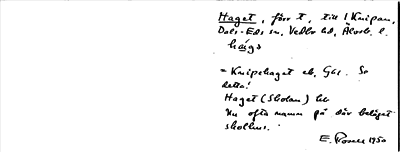 Haget, förr t, till 1 Knipan,
Dals-Eds sn, Vedbo hd, Älvsb. l.
= Knipehaget eb, GK. Se
detta!
Haget (Skolan) bb
Nu ofta namn på där beläget
skolhus.
E. 1950